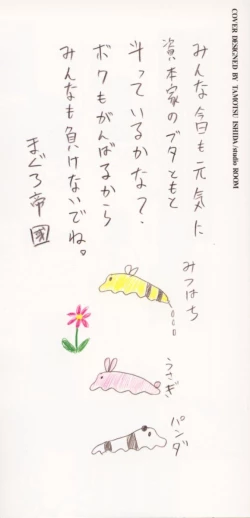 みんな今日も元気に
資本家のブタともと
斗っているかな?
ボクもがんばるから
みんなも負けないでね。
まぐろ帝國
みつはち
うさぎ
パンダ
COVER DESIGNED BY TAMOTSU ISHIDA/studio ROOM